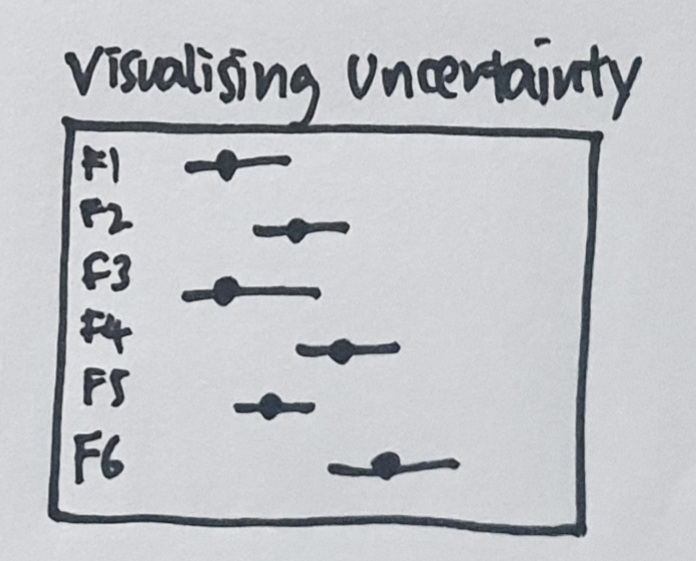 Visualising Uncertainty
F1
F2
F3
F4
F5
F6